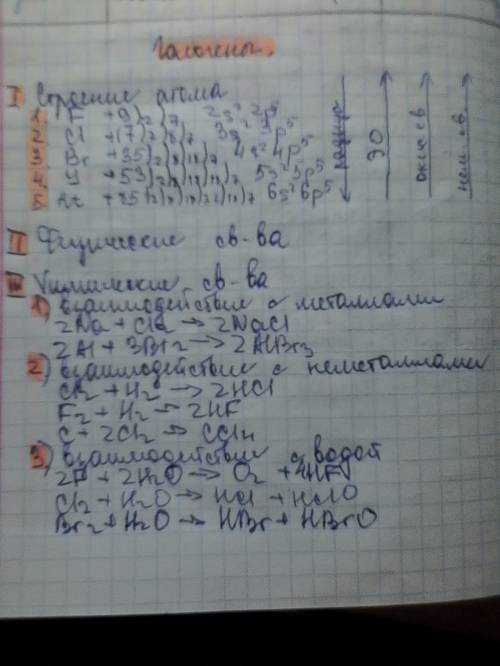 Галогены.
I Строение атома
1. F +9)2)7 2s² 2p⁵
2. Cl +17)2)8)7 3s² 3p⁵
3. Br +35)2)8)18)7 4s² 4p⁵
4. J +53)2)8)18)18)7 5s² 5p⁵
5. At +85)2)8)18)32)18)7 6s² 6p⁵
радиус
ЭО
окис св
нем. св
II Физические св-ва
III Химические св-ва
1) взаимодействие с металлами
2Na + Cl2 → 2NaCl
2Al + 3Br2 → 2AlBr3
2) взаимодействие с неметаллами
Cl2 + H2 → 2HCl
F2 + H2 → 2HF
C + 2Cl2 → CCl4
3) взаимодействие с водой
2F + 2H2O → O2 + 4HF
Cl2 + H2O → HCl + HClO
Br2 + H2O → HBr + HBrO